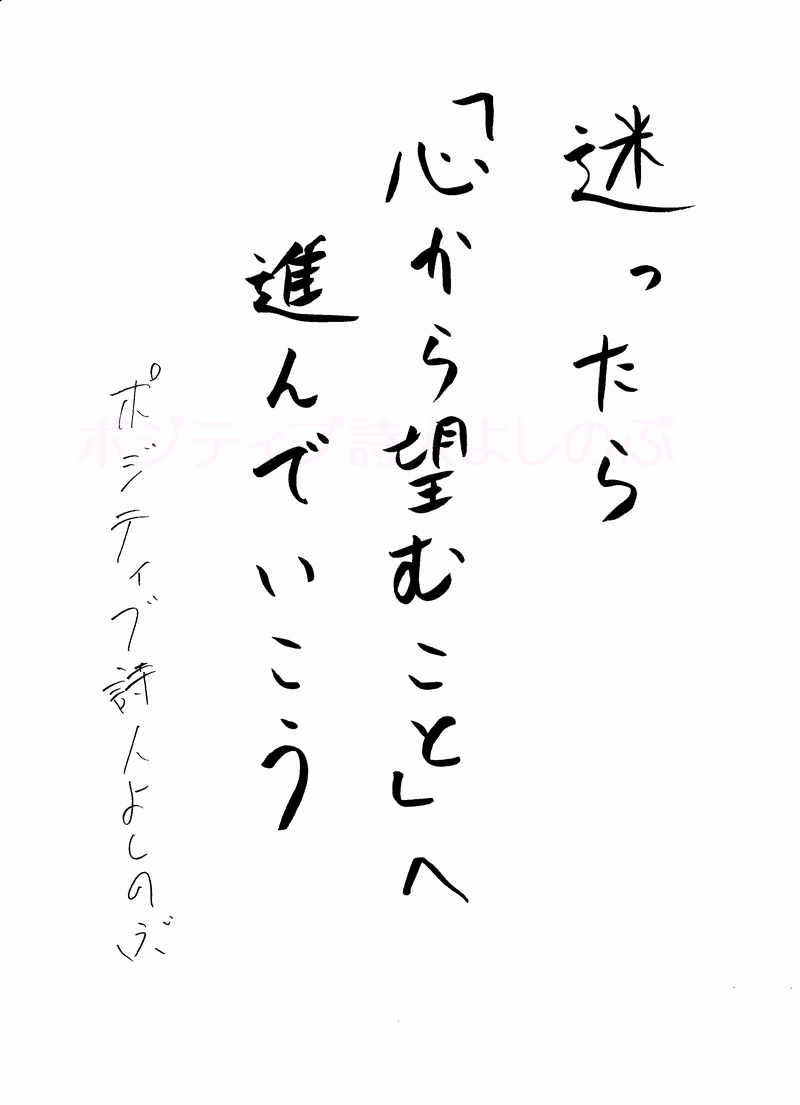 迷ったら
「心から望むこと」へ
進んでいこう
ポジティブ詩人よしのぶ
ポジティブ詩人よしのぶ